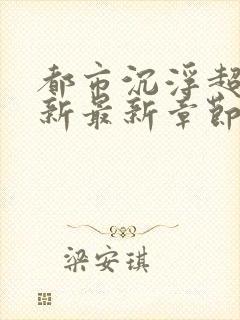 都市沉浮超
新最新章節
梁安琪